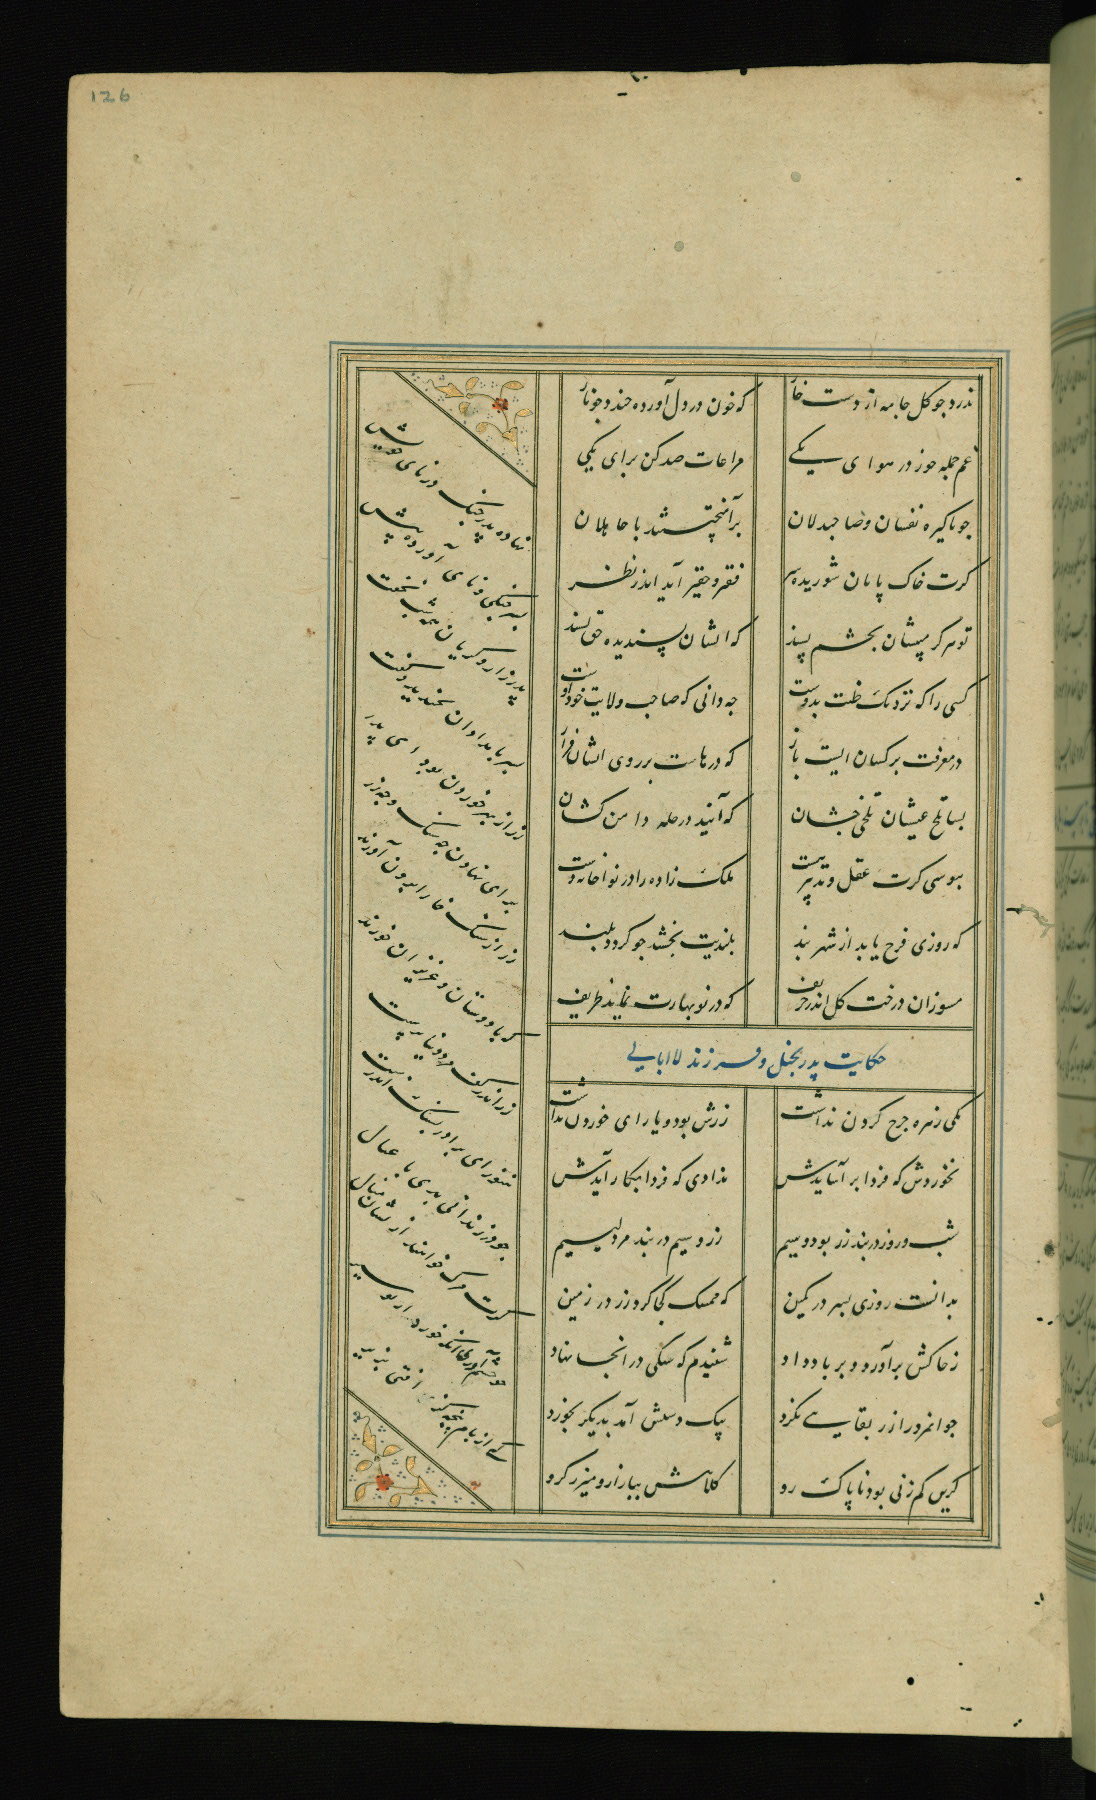 126
ندرد چو گل جامه از دست خار
که خون در دل آورده خندد چو نار
غم جمله خور در هوای یکے
مراعات صد کن برای یکی
چو پاکیزه نفسان و صاحبدلان
برآمیختستند با جاهلان
گرت خاک پایان شوریده سر
فقیر و حقیر آید اندر نظر
تو هرگز مبینشان بچشم پسند
که ایشان پسندیده حق بسند
کسی را که نزدیک ظنت بدوست
چه دانی که صاحب ولایت خود اوست
در معرفت بر کسان است باز
که درهاست بر روی ایشان فراز
بسا تلخ عیشان تلخی چشان
که آیند در حله دامن کشان
ببوسی گرت عقل و تدبیر هست
ملک زاده را در نواخانه دست
که روزی فرج یابد از شهر بند
بلندیت بخشد چو گردد بلند
مسوزان درخت گل اندر خریف
که در نوبهارت نماید ظریف
حکایت پدر بخیل و فرزند لاابالی
یکی زهره خرج کردن نداشت
زرش بود و یارای خوردن نداشت
نخوردش که فردا بر آسایدش
ندادی که فردا بکار آیدش
شب و روز در بند زر بود و سیم
زر و سیم در بند مرد لئیم
بدانست روزی پسر در کمین
که ممسک کجا کرد زر در زمین
ز خاکش برآورد و بر باد داد
شنیدم که سنگی در آنجا نهاد
جوانمرد را زر بقایی نکرد
بیک دستش آمد بدیگر بخورد
کزین کم زنی بود ناپاک رو
کلاهش ببازار و میزر گرو
نهاده پدر چنگ در نای خویش
پسر چنگی و نایی آورده پیش
پدر زار و گریان همه شب نخفت
پسر بامدادان بخندید و گفت
زر از بهر خوردن بود ای پدر
برای نهادن چه سنگ و چه زر
زر از سنگ خارا برون آورند
که با دوستان و عزیزان خورند
زر اندر کف مرد دنیا پرست
هنوز ای برادر بسنگ اندرست
چو در زندگانی بدی با عیال
گرت مرگ خواهند از ایشان منال
چو چشم آنگه خورند از تو سیر
که از بام پنجه گز افتی بزیر